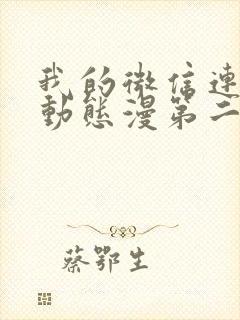 我的微信連
動態漫第二
蔡鄂生